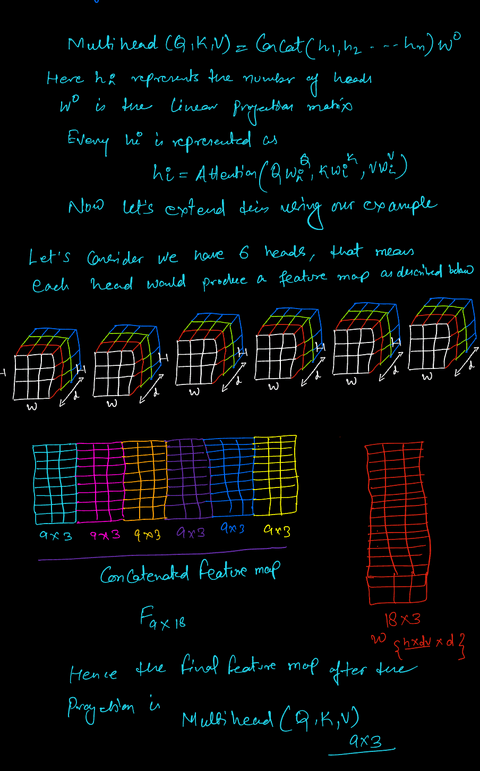 Multihead (Q,K,V) = Concat (h1, h2 ---- hn) W^O
Here hi represents the number of heads
W^O is the linear projection matrix
Every hi is represented as
hi = Attention (QWi^Q, KWi^K, VWi^V)
Now let's extend this using our example
Let's consider we have 6 heads, that means
each head would produce a feature map as described below
H H H H H H
W W W W W W
d d d d d d
9x3 9x3 9x3 9x3 9x3 9x3
Concatenated feature map
F9x18
18x3
W {hxdv x d}
Hence the final feature map after the
projection is
Multihead (Q,K,V)
9x3